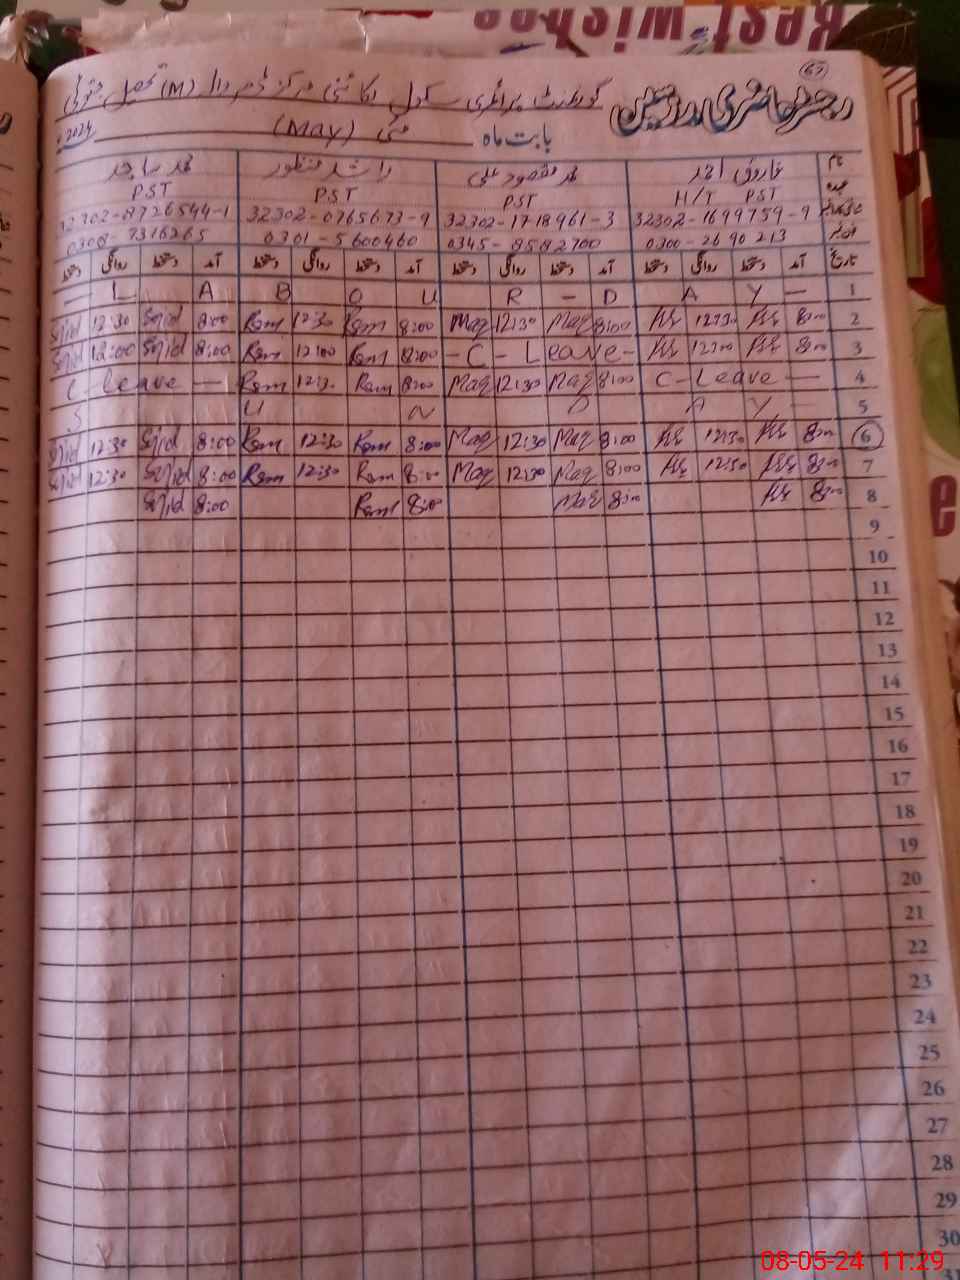 Best wishes
67
رجسٹر حاضری مدرسین گورنمنٹ پرائمری سکول مرکز (M) تحصیل جتوئی
بابت ماہ مئی (May) 2024ء
نام فاروق احمد محمد مقصود علی راشد منظور محمد ساجد
عہدہ H/T PST PST PST PST
32302-1699759-9 32302-1718961-3 32302-0765673-9 32302-8726594-1
0300-2690213 0345-8582700 0301-5600460 0308-7316265
تاریخ آمد دستخط روانگی دستخط آمد دستخط روانگی دستخط آمد دستخط روانگی دستخط آمد دستخط روانگی دستخط
— L A B O U R - D A Y — 1
Sajid 12:30 Sajid 8:00 Ram 12:30 Ram 8:00 Maq 12:30 Maq 8:00 12:30 8:00 2
Sajid 12:00 Sajid 8:00 Ram 12:00 Ram 8:00 - C - Leave - 12:00 8:00 3
C - Leave — Ram 12:30 Ram 8:00 Maq 12:30 Maq 8:00 C - Leave — 4
S U N D A Y — 5
Sajid 12:30 Sajid 8:00 Ram 12:30 Ram 8:00 Maq 12:30 Maq 8:00 12:30 8:00 6
Sajid 12:30 Sajid 8:00 Ram 12:30 Ram 8:00 Maq 12:30 Maq 8:00 12:30 8:00 7
Sajid 8:00 Ram 8:00 Maq 8:00 8:00 8
9
10
11
12
13
14
15
16
17
18
19
20
21
22
23
24
25
26
27
28
29
30
31
08-05-24 11:29